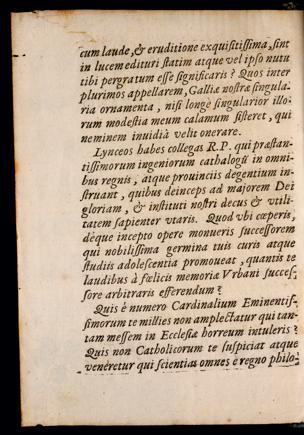 cum laude, & eruditione exquisitissima, sint
in lucem edituri statim atque vel ipso nutu
tibi pergratum esse significaris? Quos inter
plurimos appellarem, Galliæ nostræ singula-
ria ornamenta, nisi longè singularior illo-
rum modestia meum calamum sisteret, qui
neminem inuidiâ velit onerare.
Lynceos habes collegas R.P. qui præstan-
tissimorum ingeniorum cathalogū in omni-
bus regnis, atque prouinciis degentium in-
struant, quibus deinceps ad majorem Dei
gloriam, & instituti nostri decus & vtili-
tatem sapienter vtaris. Quod vbi cœperis,
déque incepto opere monueris successorem
qui nobilissima germina tuis curis atque
studiis adolescentia promoueat, quantis te
laudibus à fœlicis memoriæ Vrbani succes-
sore arbitraris efferendum?
Quis è numero Cardinalium Eminentis-
simorum te millies non amplectatur qui tan-
tam messem in Ecclesiæ horreum intuleris?
Quis non Catholicorum te suspiciat atque
veneretur qui scientias omnes è regno philo-